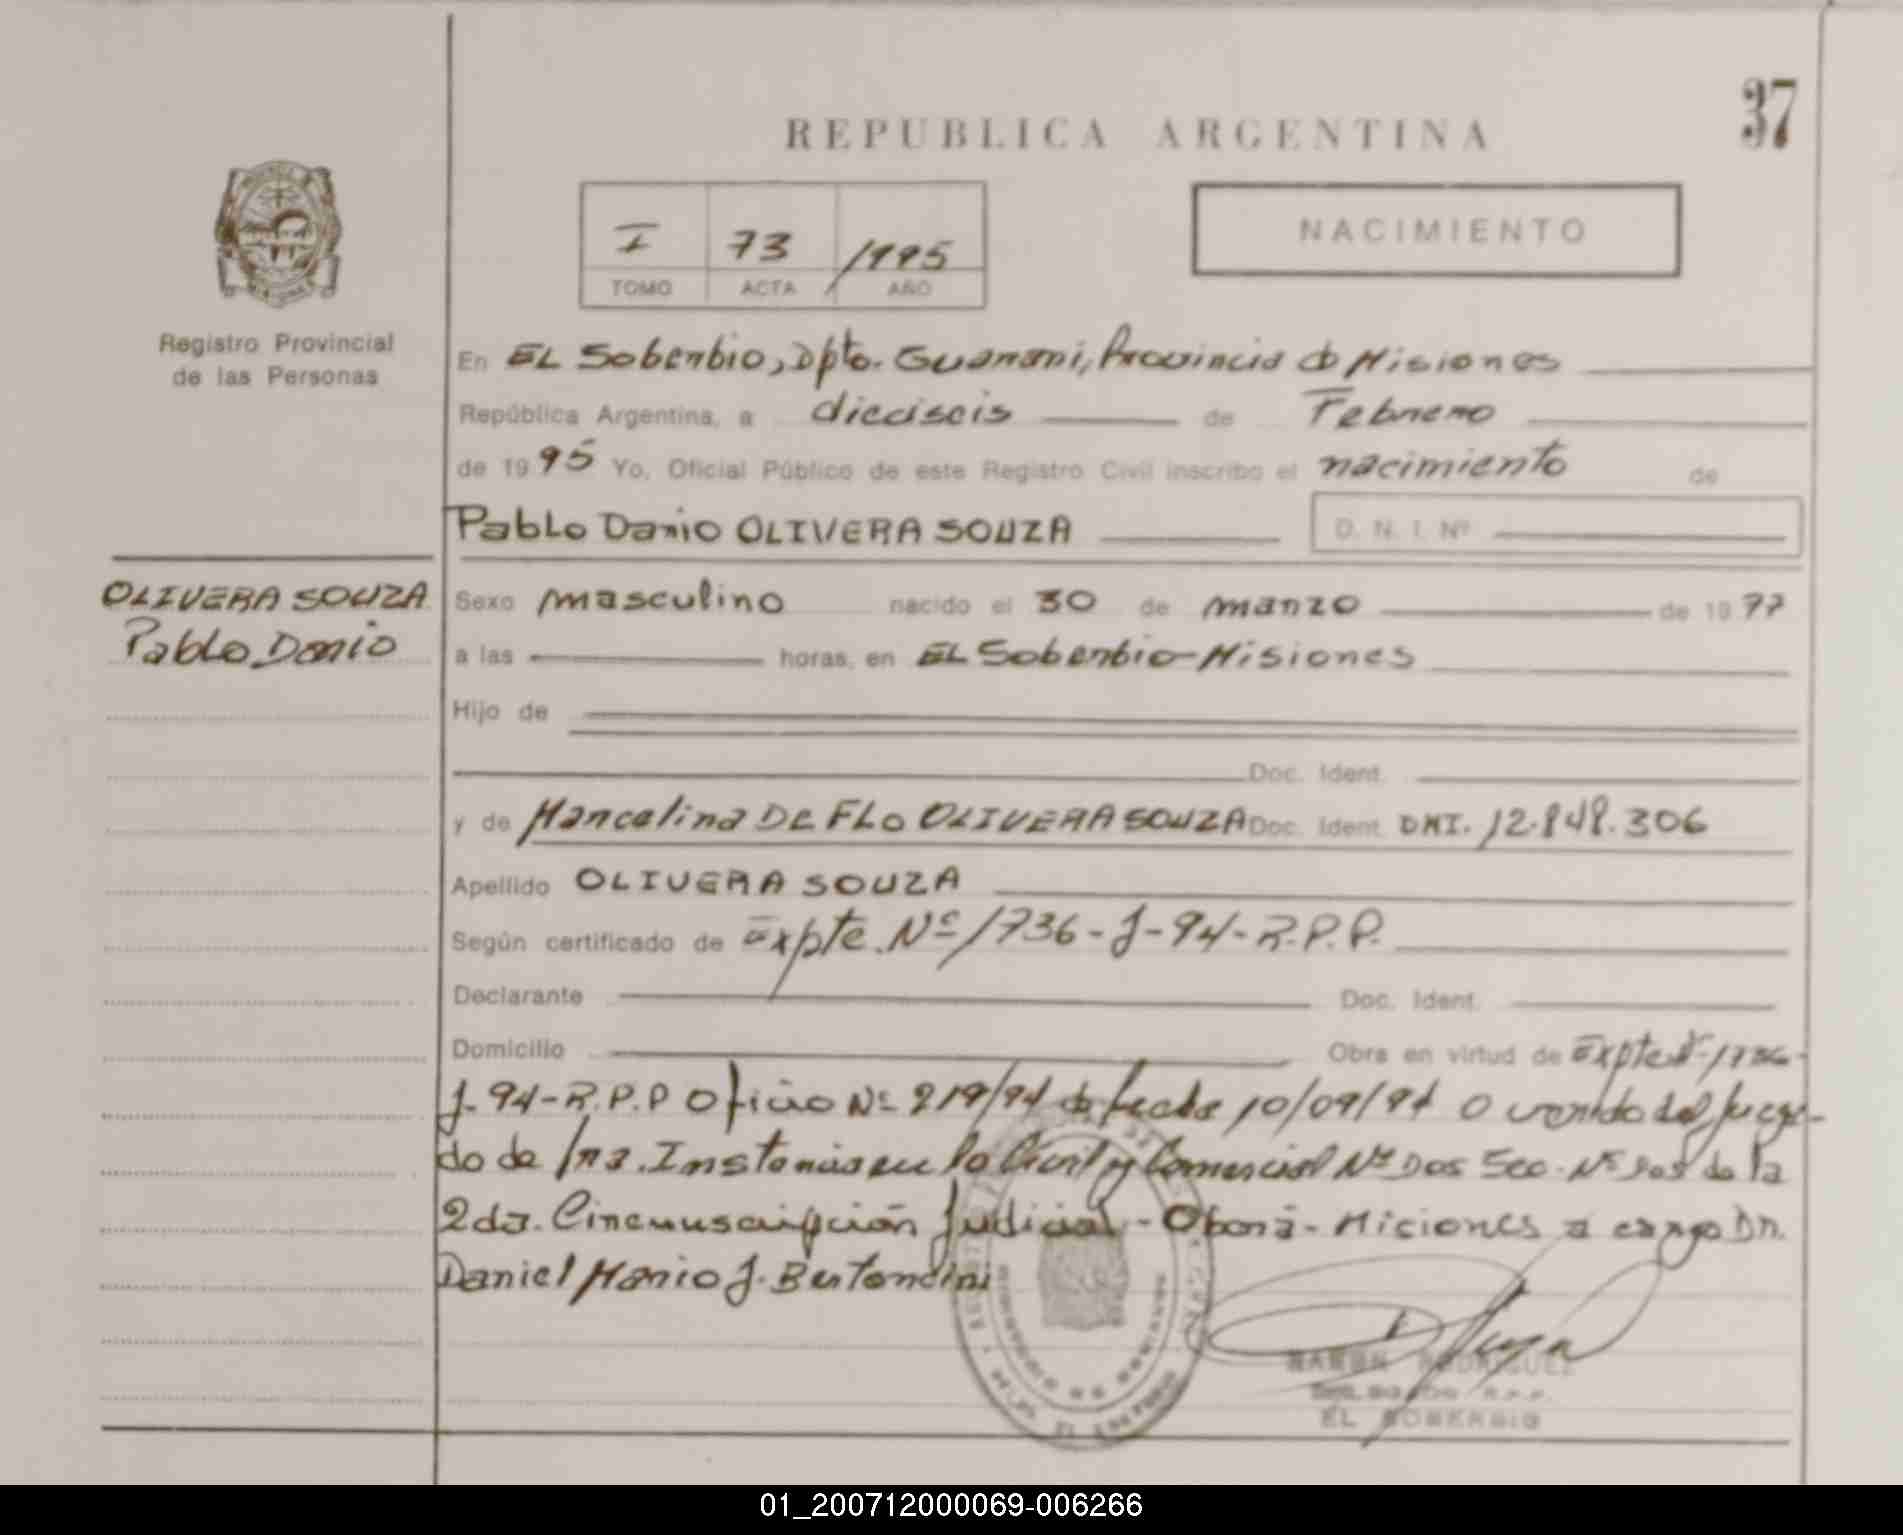 37
REPUBLICA ARGENTINA
I 73 1995
TOMO ACTA AÑO
NACIMIENTO
Registro Provincial
de las Personas
En EL Soberbio, Dpto. Guarani, Provincia de Misiones
República Argentina, a dieciseis de Febrero
de 1995 Yo, Oficial Público de este Registro Civil inscribo el nacimiento de
Pablo Dario OLIVERA SOUZA D. N. I. Nº
OLIVERA SOUZA
Pablo Dario
Sexo masculino nacido el 30 de marzo de 1977
a las horas, en EL Soberbio-Misiones
Hijo de
Doc. Ident.
y de Marcelina DE FLO OLIVERA SOUZA Doc. Ident. DNI. 12.848.306
Apellido OLIVERA SOUZA
Según certificado de Expte. Nº 1736-J-94-R.P.P.
Declarante Doc. Ident.
Domicilio Obra en virtud de Expte Nº 1736-
J-94-R.P.P Oficio Nº 219/94 de fecha 10/09/94 venido del Juzga-
do de 1ra. Instancia en lo Civil y Comercial Nº Dos Sec. Nº Dos de la
2da. Circunscripción Judicial-Oberá-Misiones a cargo Dr.
Daniel Mario J. Bertoncini
RAMON RODRIGUEZ
DELEGADO R.P.P.
EL SOBERBIO
01_200712000069-006266